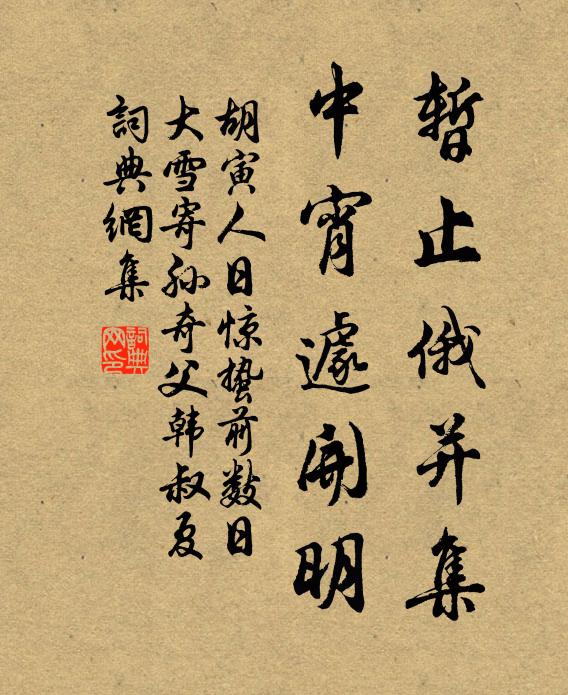 暫止俄并集
中宵遽開明
胡寅人日惊蛰前数日
大雪寄孙奇父韩叔夏
詞典網集
詞典网印